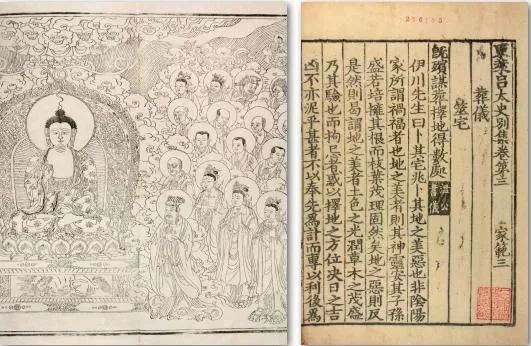 東萊呂太史別集卷第三 家範三
葬儀
筮宅
旣殯謀葬擇地得數處
伊川先生曰卜其宅兆卜其地之美惡也非陰陽
家所謂禍福者也地之美者則其神靈安其子孫
盛若培擁其根而枝葉茂理固然矣地之惡則反
是然則曷謂地之美者土色之光潤草木之茂盛
乃其驗也而拘忌者惑以擇地之方位決日之吉
凶不亦泥乎甚者不以奉先爲計而專以利後爲